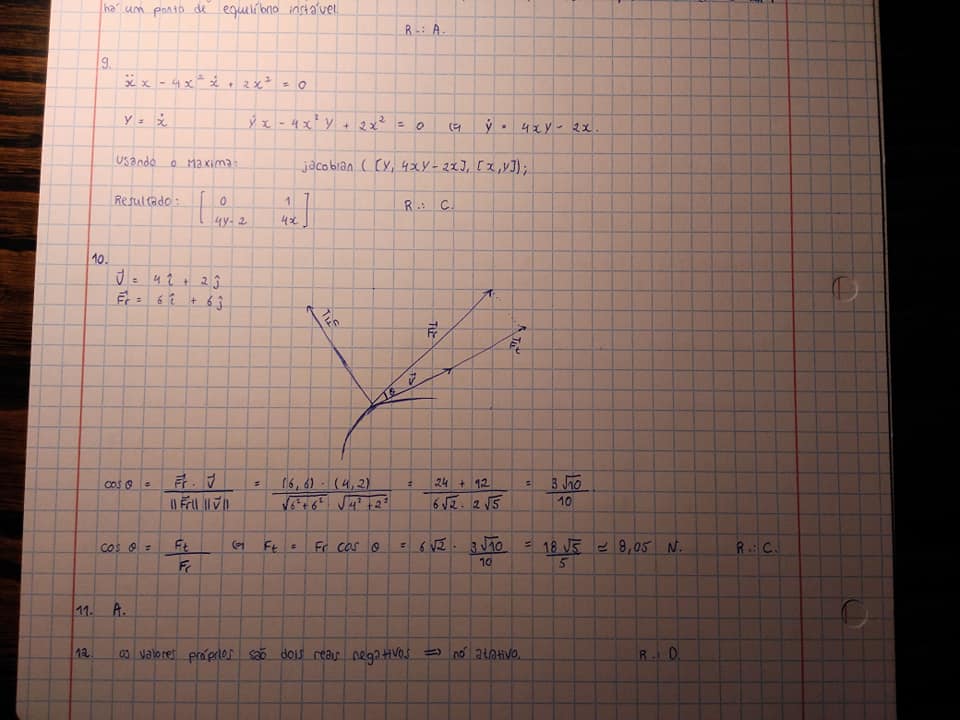 há um ponto de equilíbrio instável.
R.: A.
9.
ẍ x - 4x² ẋ + 2x² = 0
Y = ẋ ẏ x - 4x² Y + 2x² = 0 ⇔ ẏ = 4xY - 2x.
Usando o Maxima: jacobian ([Y, 4xY-2x], [x,Y]);
Resultado: [ 0 1
4Y-2 4x ] R.: C.
10.
v⃗ = 4 î + 2 ĵ
F⃗r = 6 î + 6 ĵ
F⃗r
F⃗t
v⃗
θ
cos θ = F⃗r · v⃗ / ||F⃗r|| ||v⃗|| = (6,6) · (4,2) / √6²+6² √4²+2² = 24 + 12 / 6√2 · 2√5 = 3√10 / 10.
cos θ = Ft / Fr ⇔ Ft = Fr cos θ = 6√2 · 3√10 / 10 = 18√5 / 5 ≃ 8,05 N. R.: C.
11. A.
12. os valores próprios são dois reais negativos ⟹ nó atrativo. R.: D.